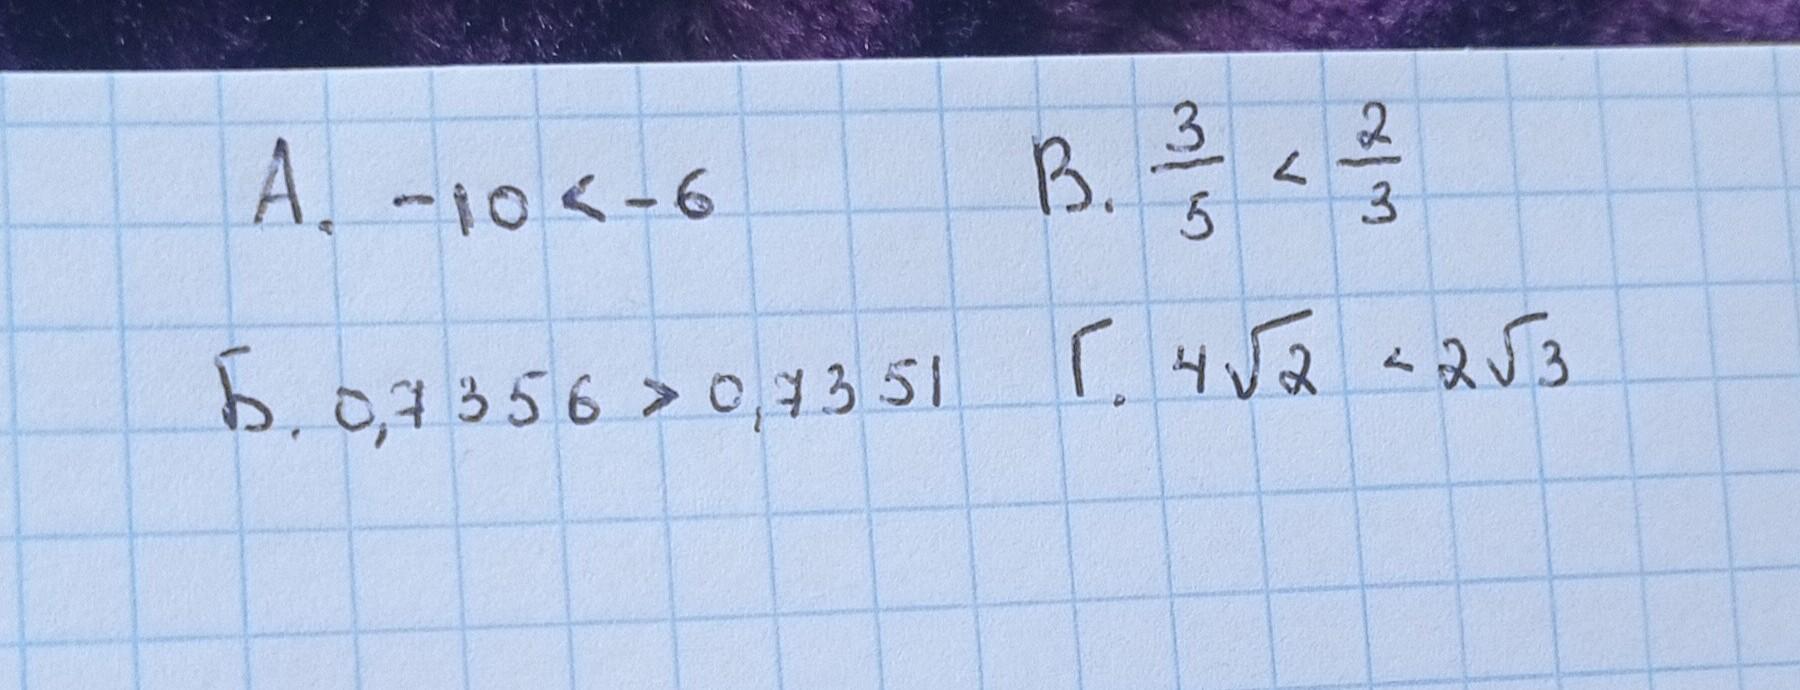 А. -10 < -6
В. 3/5 < 2/3
Б. 0,7356 > 0,7351
Г. 4√2 < 2√3